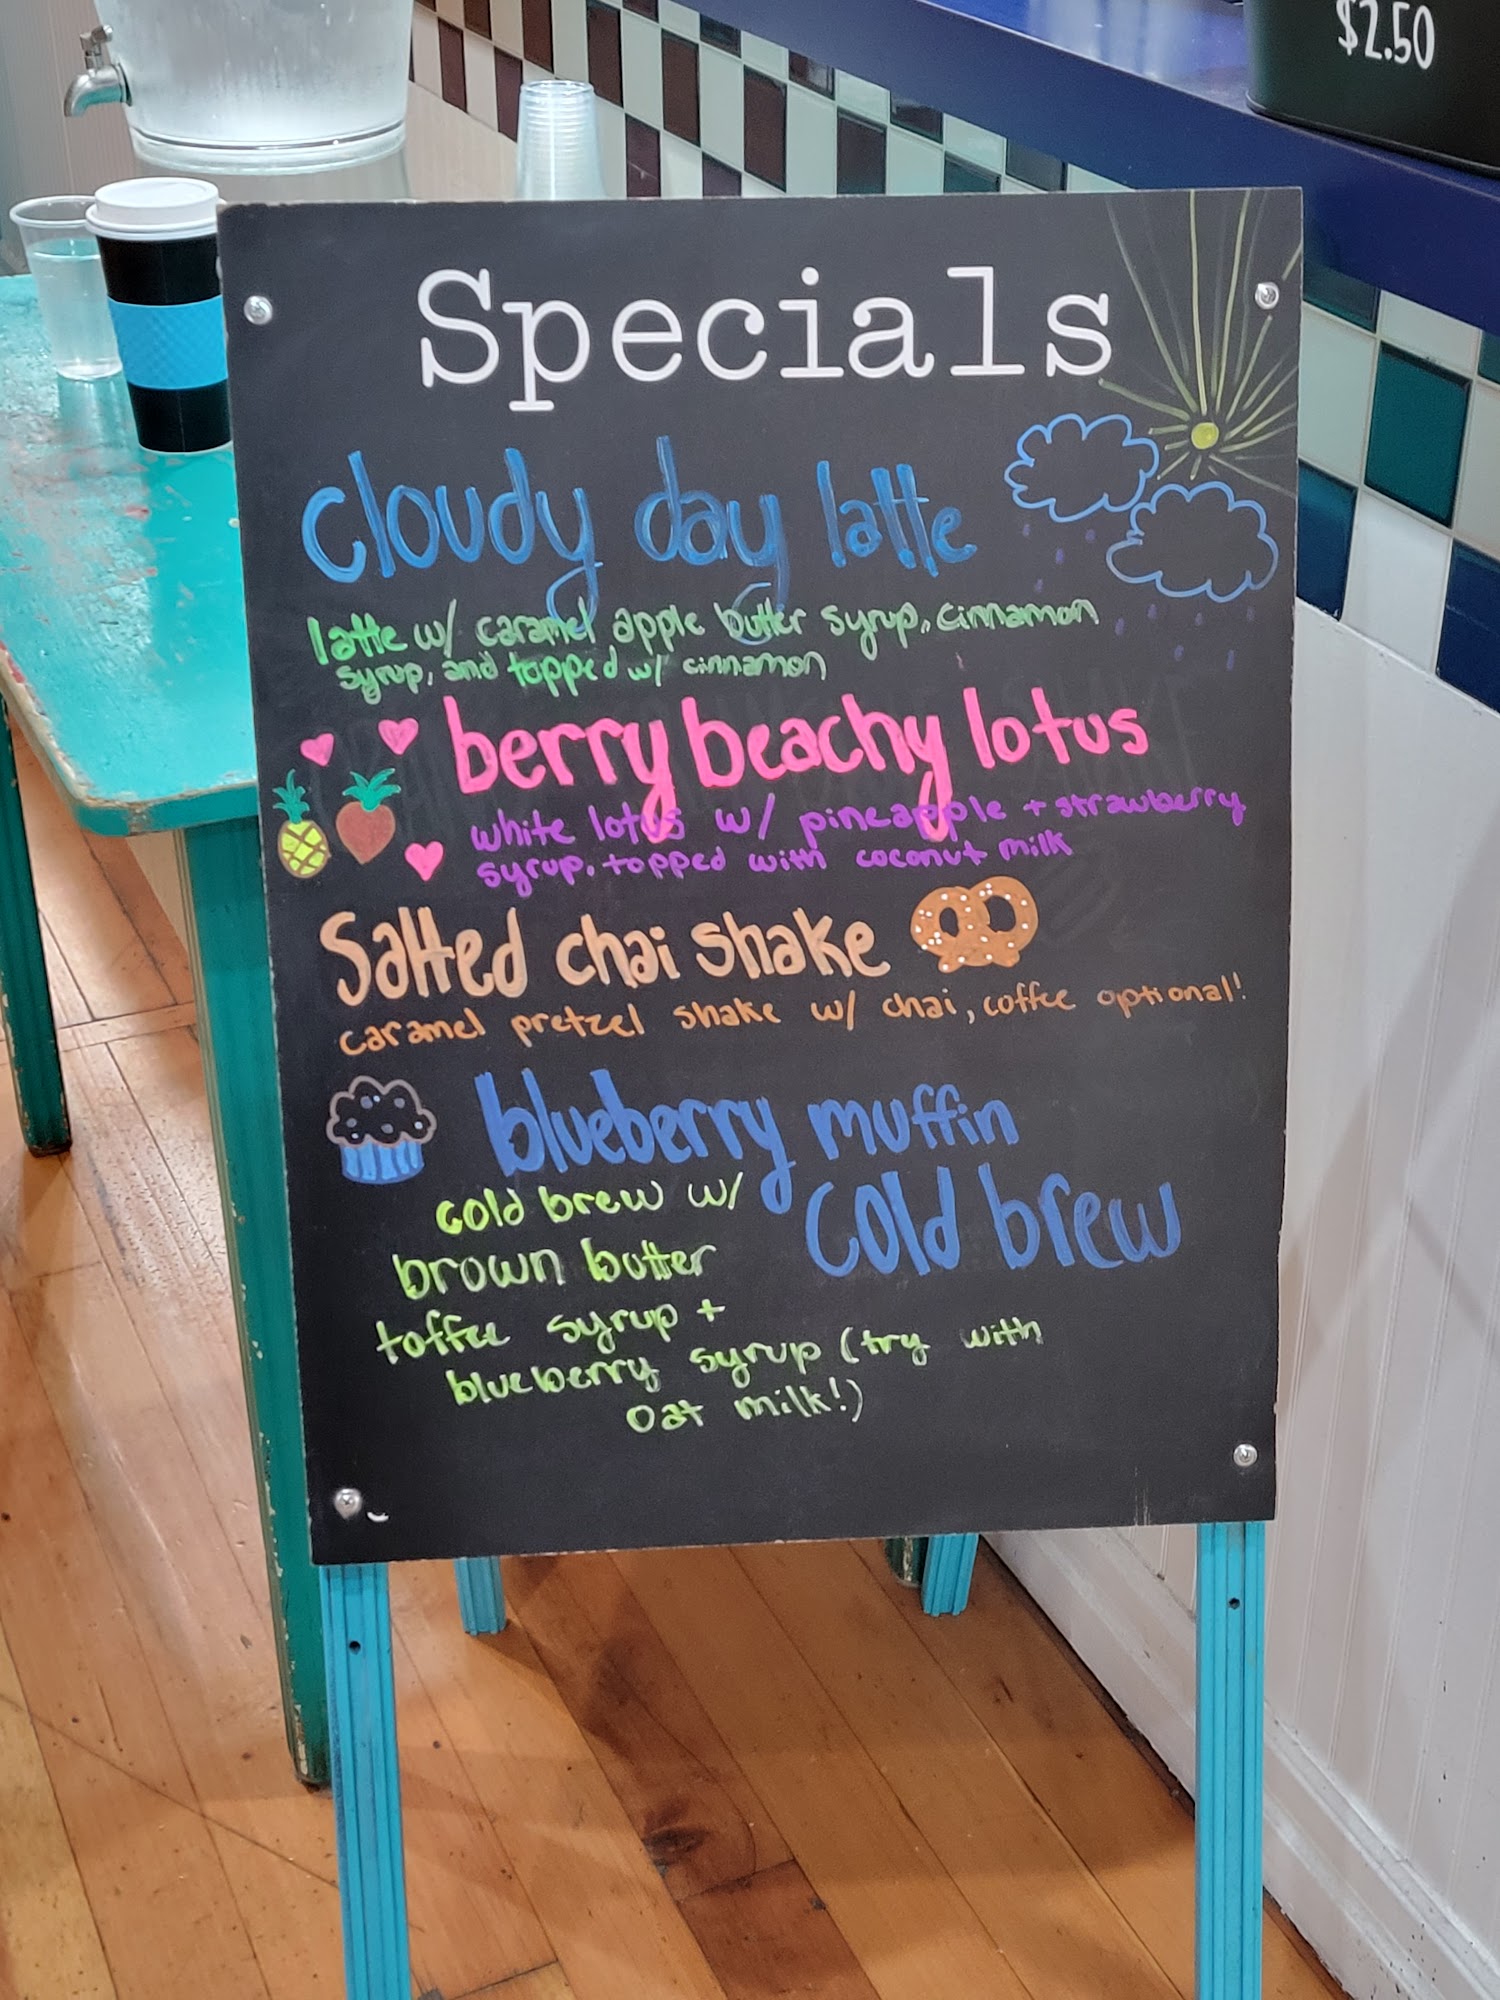 $2.50
Specials
cloudy day latte
latte w/ caramel apple butter syrup, cinnamon
syrup, and topped w/ cinnamon
berry beachy lotus
white lotus w/ pineapple + strawberry
syrup, topped with coconut milk
Salted chai shake
caramel pretzel shake w/ chai, coffee optional!
blueberry muffin
cold brew
cold brew w/
brown butter
toffee syrup +
blueberry syrup (try with
oat milk!)